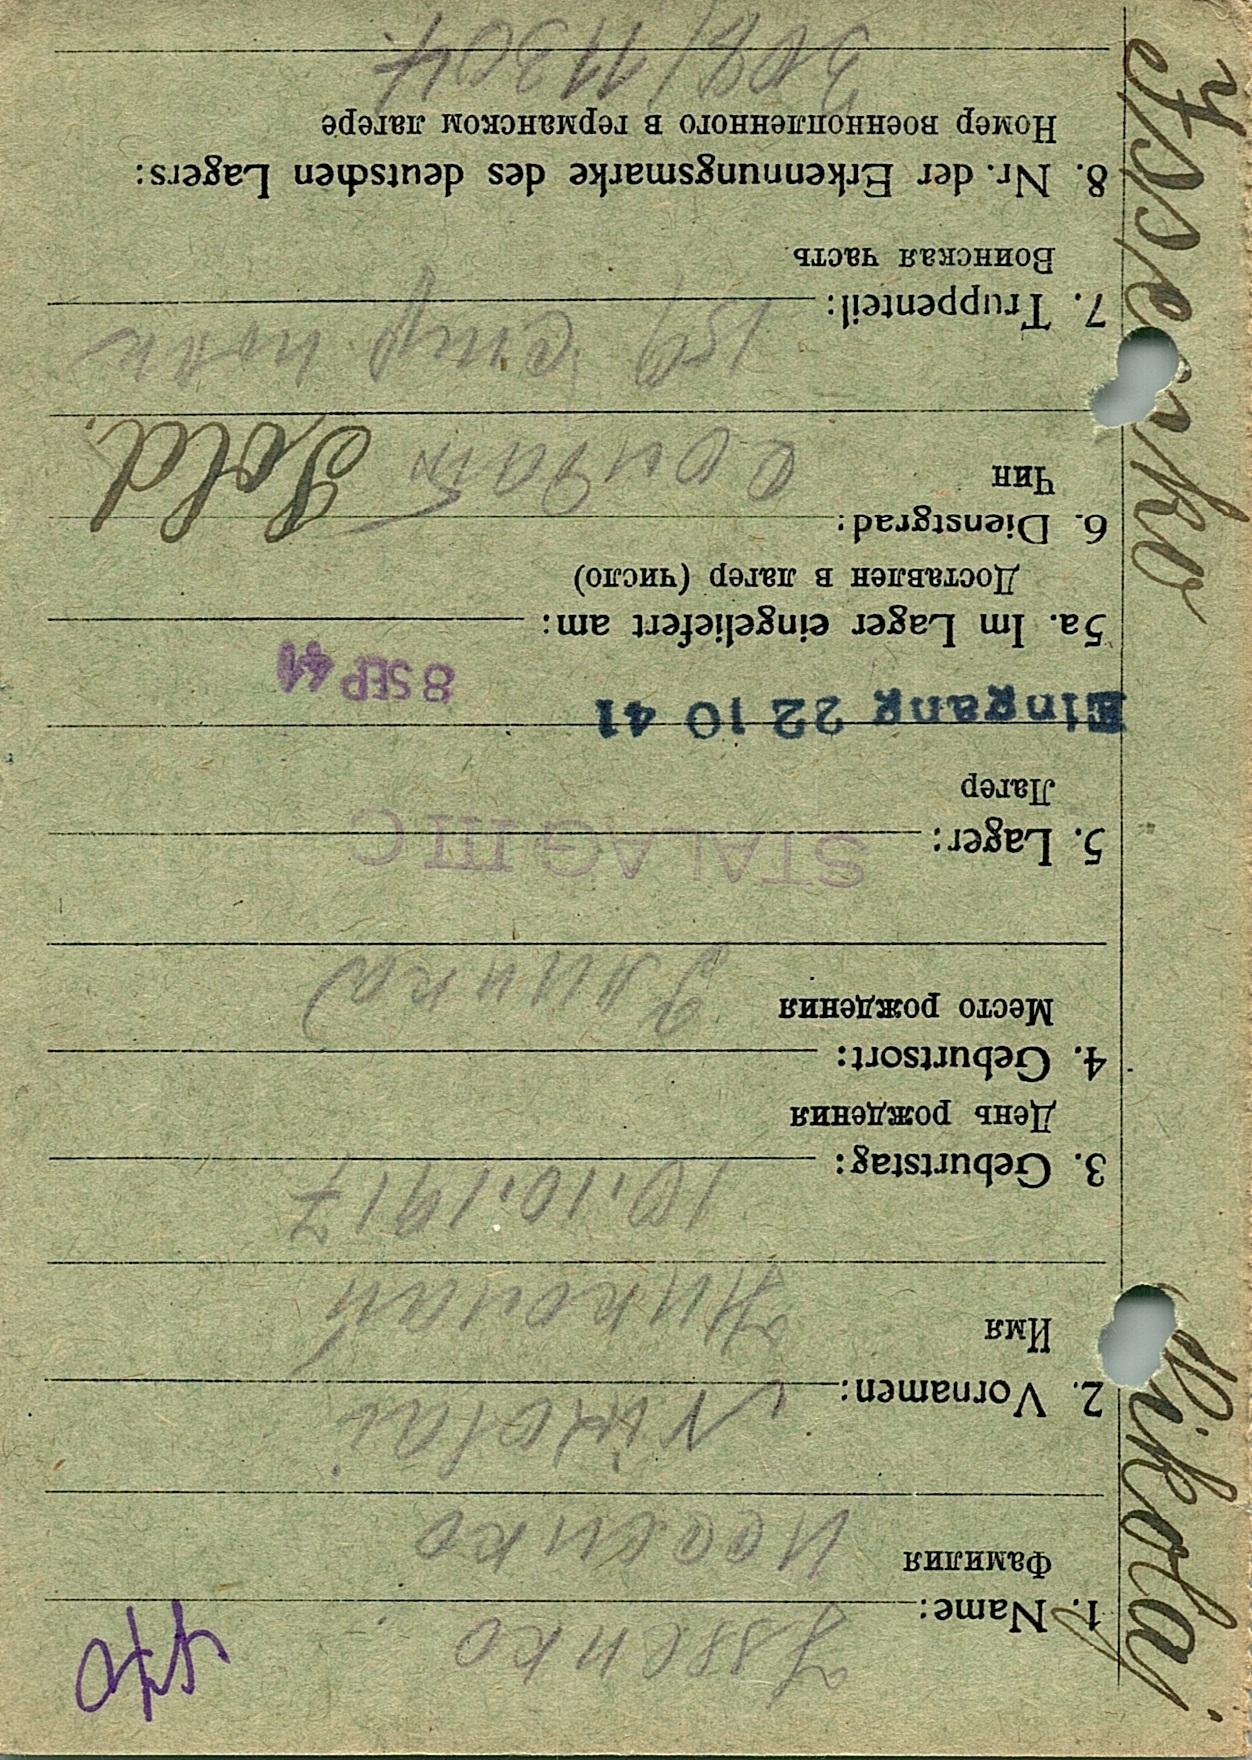 Issenko
1. Name:
Фамилия
Иссенко
Nikolai
2. Vornamen:
Имя
Николай
10.10.1917
3. Geburtstag:
День рождения
4. Geburtsort:
Место рождения
STALAG III C
5. Lager:
Лагер
Eingang 22 10 41
8 SEP 41
5a. Im Lager eingeliefert am:
Доставлен в лагер (число)
6. Dienstgrad:
Чин
Солдат Sold.
159 стр полк
7. Truppenteil:
Воинская часть
8. Nr. der Erkennungsmarke des deutschen Lagers:
Номер военнопленного в германском лагере
Issenko
Nikolaj